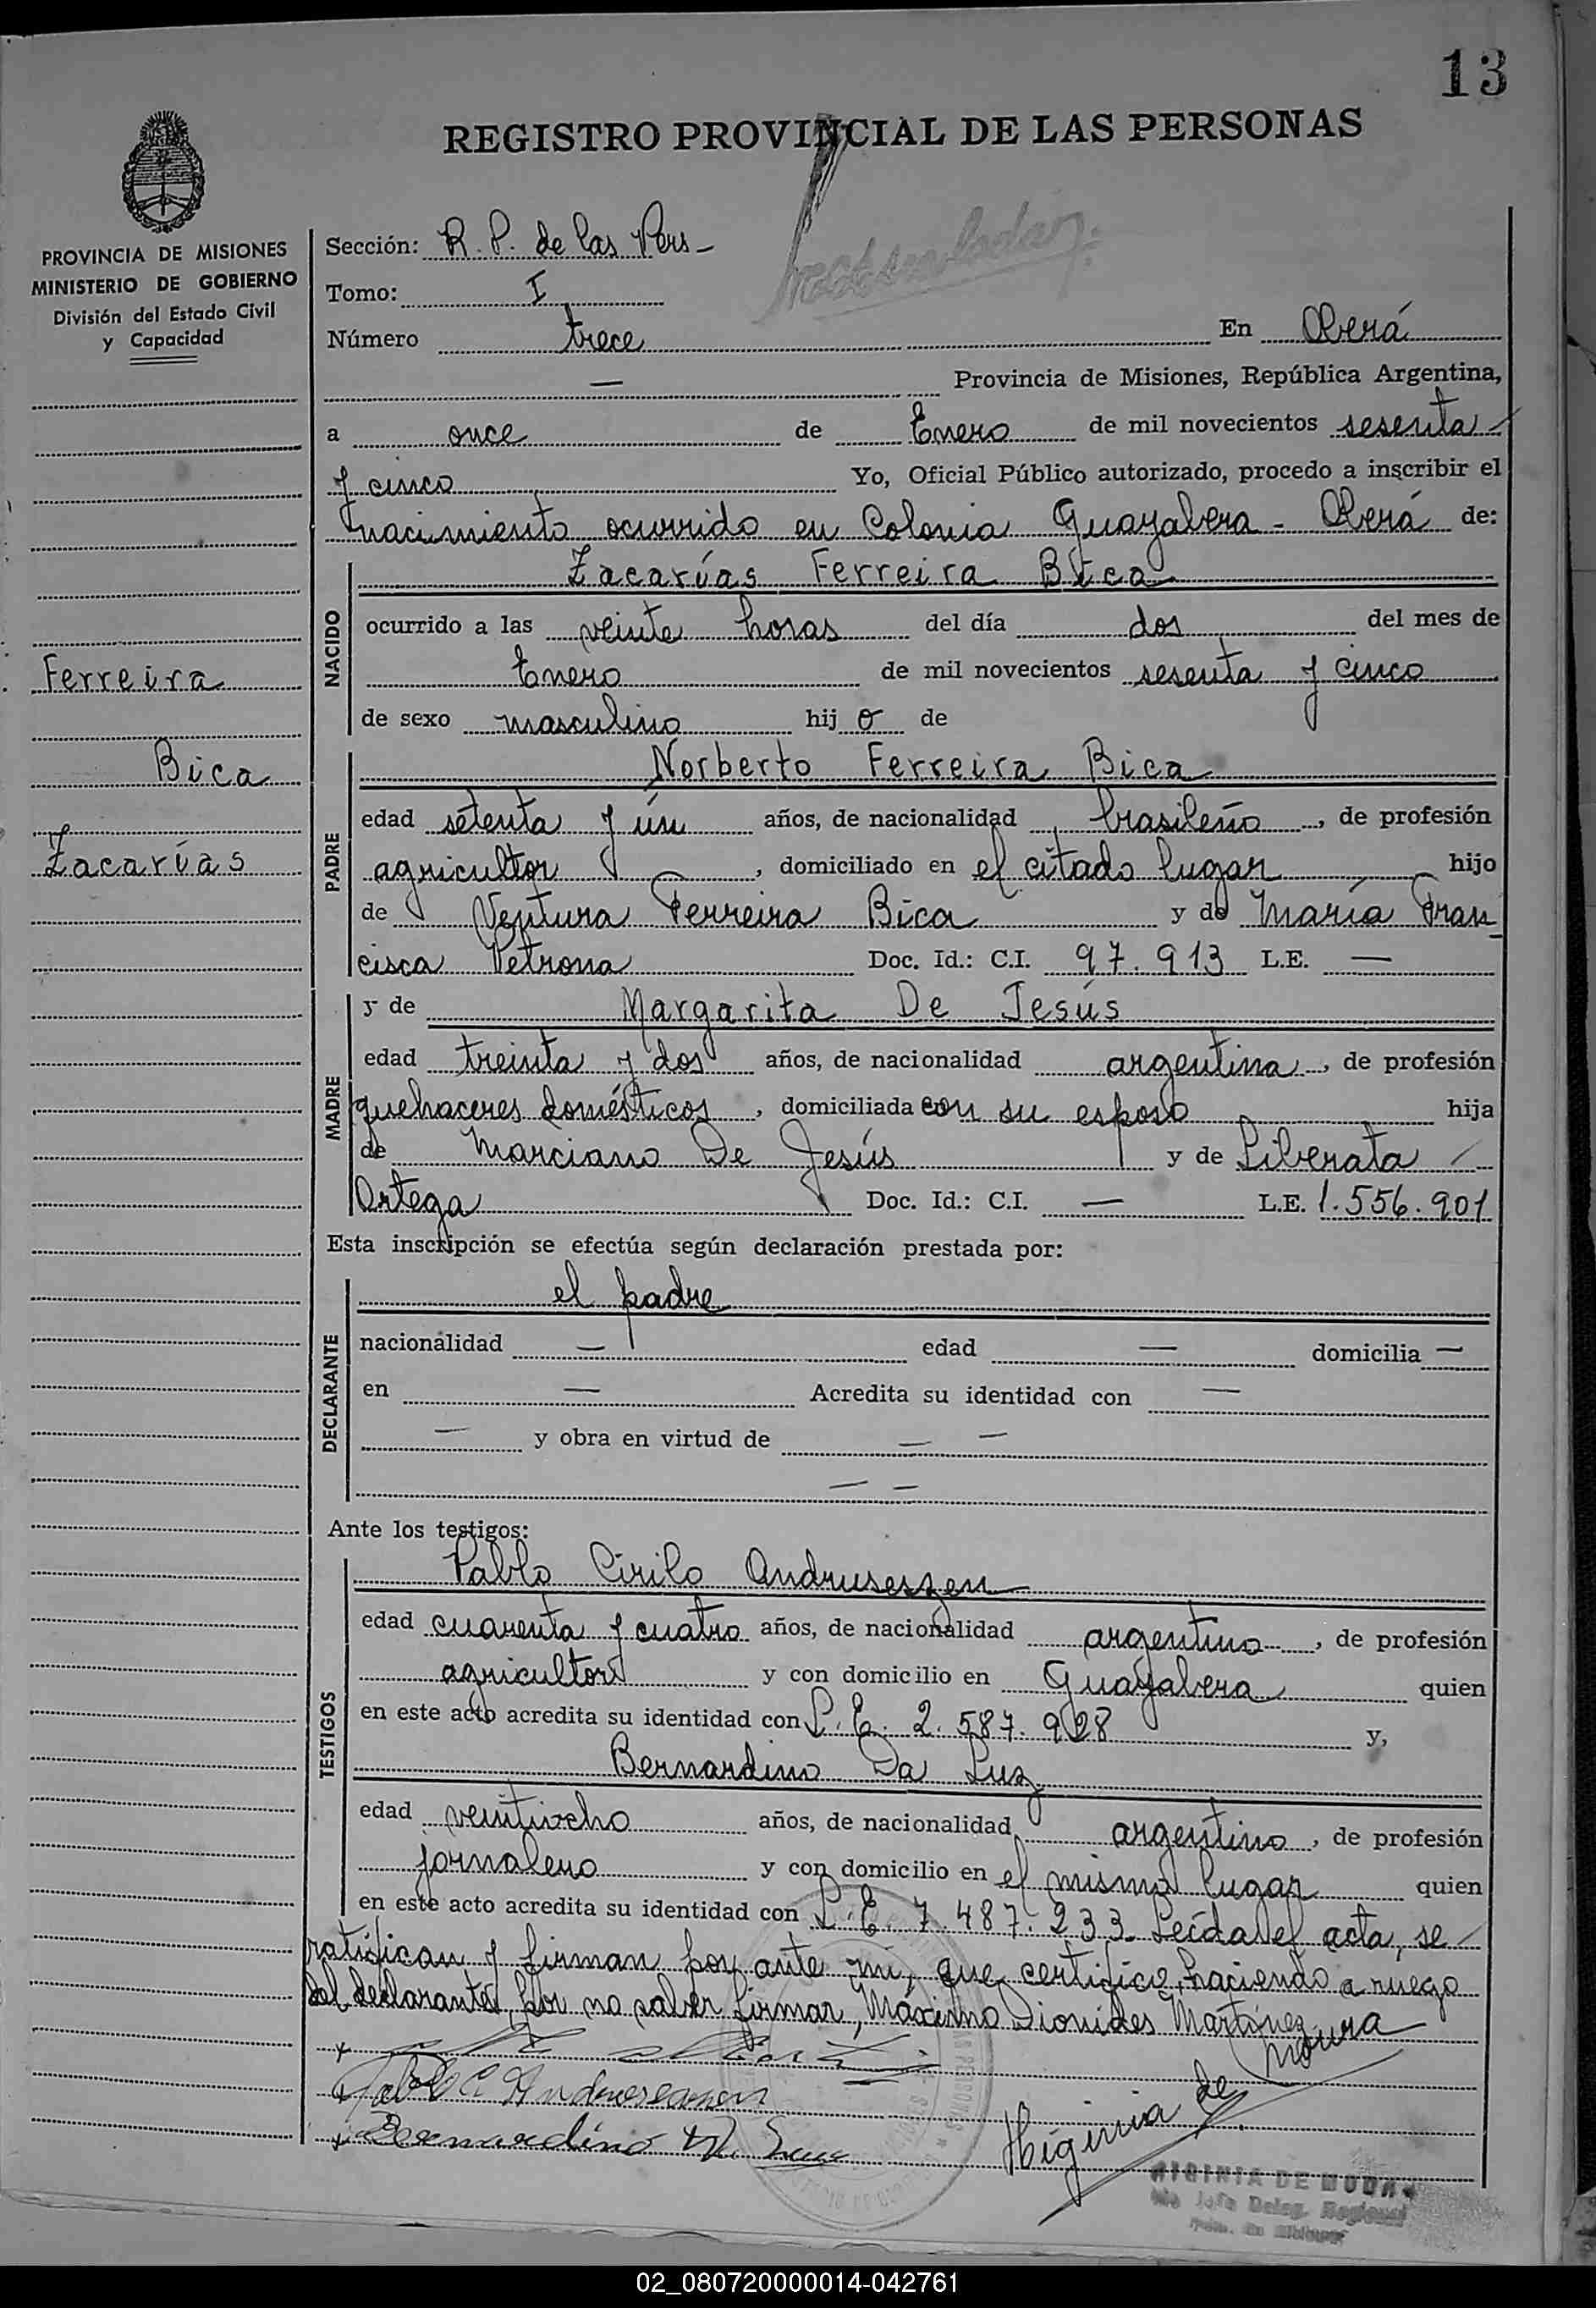 13
REGISTRO PROVINCIAL DE LAS PERSONAS
PROVINCIA DE MISIONES
MINISTERIO DE GOBIERNO
División del Estado Civil
y Capacidad
Ferreira
Bica
Zacarías
Sección: R. P. de las Pers -
Tomo: I
Número trece En Oberá
— Provincia de Misiones, República Argentina,
a once de Enero de mil novecientos sesenta
y cinco Yo, Oficial Público autorizado, procedo a inscribir el
nacimiento ocurrido en Colonia Guayabera - Oberá de:
NACIDO
Zacarías Ferreira Bica
ocurrido a las veinte horas del día dos del mes de
Enero de mil novecientos sesenta y cinco
de sexo masculino hij o de
PADRE
Norberto Ferreira Bica
edad setenta y ún años, de nacionalidad brasileño, de profesión
agricultor, domiciliado en el citado lugar hijo
de Ventura Ferreira Bica y de María Fran
cisca Petrona Doc. Id.: C.I. 97.913 L.E. —
MADRE
y de Margarita De Jesús
edad treinta y dos años, de nacionalidad argentina, de profesión
quehaceres domésticos, domiciliada con su esposo hija
de Marciano De Jesús y de Liberata
Ortega Doc. Id.: C.I. — L.E. 1.556.901
Esta inscripción se efectúa según declaración prestada por:
DECLARANTE
el padre
nacionalidad — edad — domicilia —
en — Acredita su identidad con —
— y obra en virtud de — —
— —
Ante los testigos:
TESTIGOS
Pablo Cirilo Andruseszen
edad cuarenta y cuatro años, de nacionalidad argentino, de profesión
agricultor y con domicilio en Guayabera quien
en este acto acredita su identidad con L.E. 2.587.928 y,
Bernardino Da Luz
edad veintiocho años, de nacionalidad argentino, de profesión
jornalero y con domicilio en el mismo lugar quien
en este acto acredita su identidad con L.E. 7.487.233 Leída el acta, se
ratifican y firman por ante mí, que certifico, haciendo a ruego
del declarante, por no saber firmar, Máximo Dionides Martínez
Pablo C.
Bernardino
Higinia de Moura
HIGINIA DE MOURA
Jefa Deleg. Regional
02_080720000014-042761